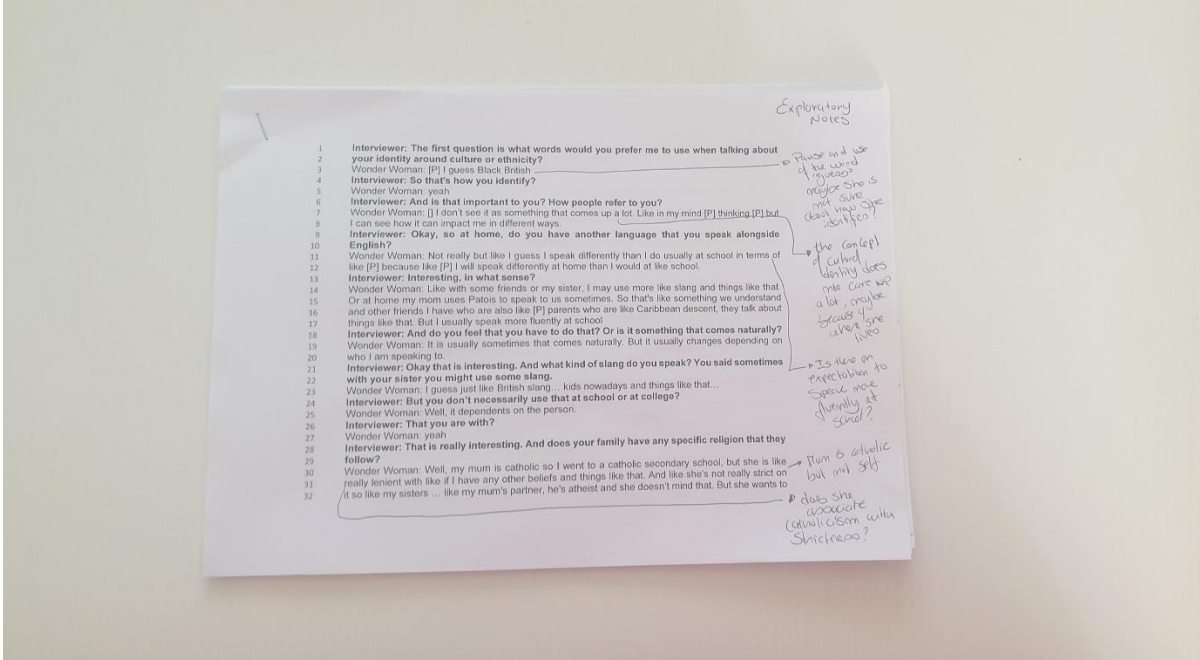 Exploratory
Notes
1 Interviewer: The first question is what words would you prefer me to use when talking about
2 your identity around culture or ethnicity?
3 Wonder Woman: [P] I guess Black British
4 Interviewer: So that's how you identify?
5 Wonder Woman: yeah
6 Interviewer: And is that important to you? How people refer to you?
7 Wonder Woman: [] I don't see it as something that comes up a lot. Like in my mind [P] thinking [P] but
8 I can see how it can impact me in different ways.
9 Interviewer: Okay, so at home, do you have another language that you speak alongside
10 English?
11 Wonder Woman: Not really but like I guess I speak differently than I do usually at school in terms of
12 like [P] because like [P] I will speak differently at home than I would at like school.
13 Interviewer: Interesting, in what sense?
14 Wonder Woman: Like with some friends or my sister, I may use more like slang and things like that.
15 Or at home my mom uses Patois to speak to us sometimes. So that's like something we understand
16 and other friends I have who are also like [P] parents who are like Caribbean descent, they talk about
17 things like that. But I usually speak more fluently at school
18 Interviewer: And do you feel that you have to do that? Or is it something that comes naturally?
19 Wonder Woman: It is usually sometimes that comes naturally. But it usually changes depending on
20 who I am speaking to.
21 Interviewer: Okay that is interesting. And what kind of slang do you speak? You said sometimes
22 with your sister you might use some slang.
23 Wonder Woman: I guess just like British slang... kids nowadays and things like that...
24 Interviewer: But you don't necessarily use that at school or at college?
25 Wonder Woman: Well, it dependents on the person.
26 Interviewer: That you are with?
27 Wonder Woman: yeah
28 Interviewer: That is really interesting. And does your family have any specific religion that they
29 follow?
30 Wonder Woman: Well, my mum is catholic so I went to a catholic secondary school, but she is like
31 really lenient with like if I have any other beliefs and things like that. And like she's not really strict on
32 it so like my sisters ... like my mum's partner, he's atheist and she doesn't mind that. But she wants to
Pause and use
of the word
'guess'
maybe she is
not sure
about how she
identifies?
the concept
of cultural
identity does
not come up
a lot, maybe
because of
where she
lives
Is there an
expectation to
speak more
fluently at
school?
Mum is catholic
but not self
does she
associate
Catholicism with
Strictness?